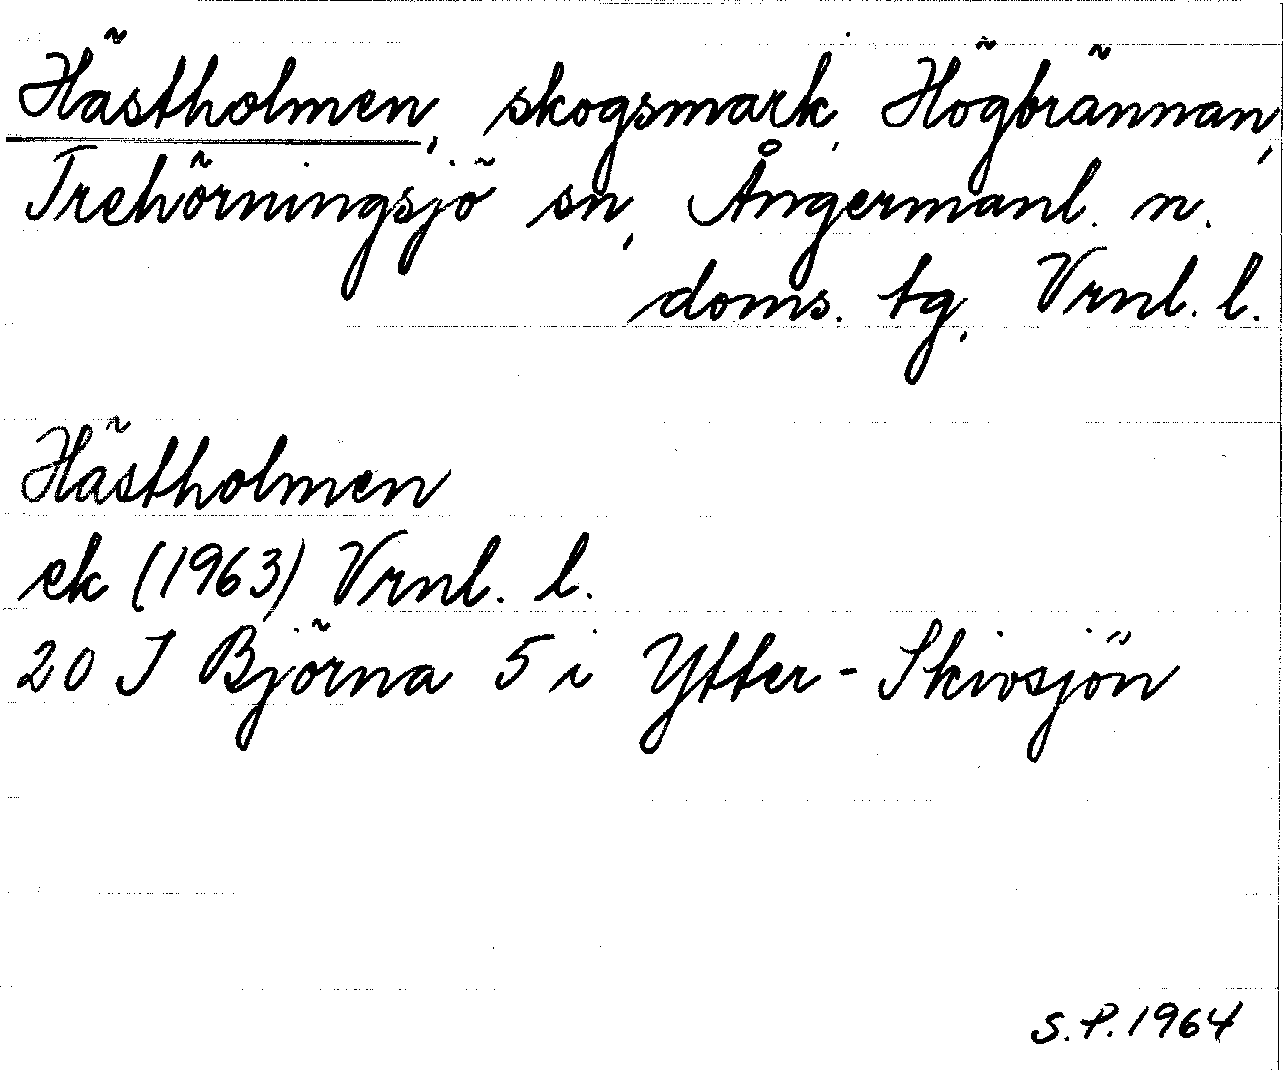 Hästholmen, skogsmark, Högbrännan,
Trehörningsjö sn, Ångermanl. n.
doms. tg, Vrnl. l.
Hästholmen
ek (1963) Vrnl. l.
20 J Björna 5 i Ytter-Skivsjön
S.P. 1964